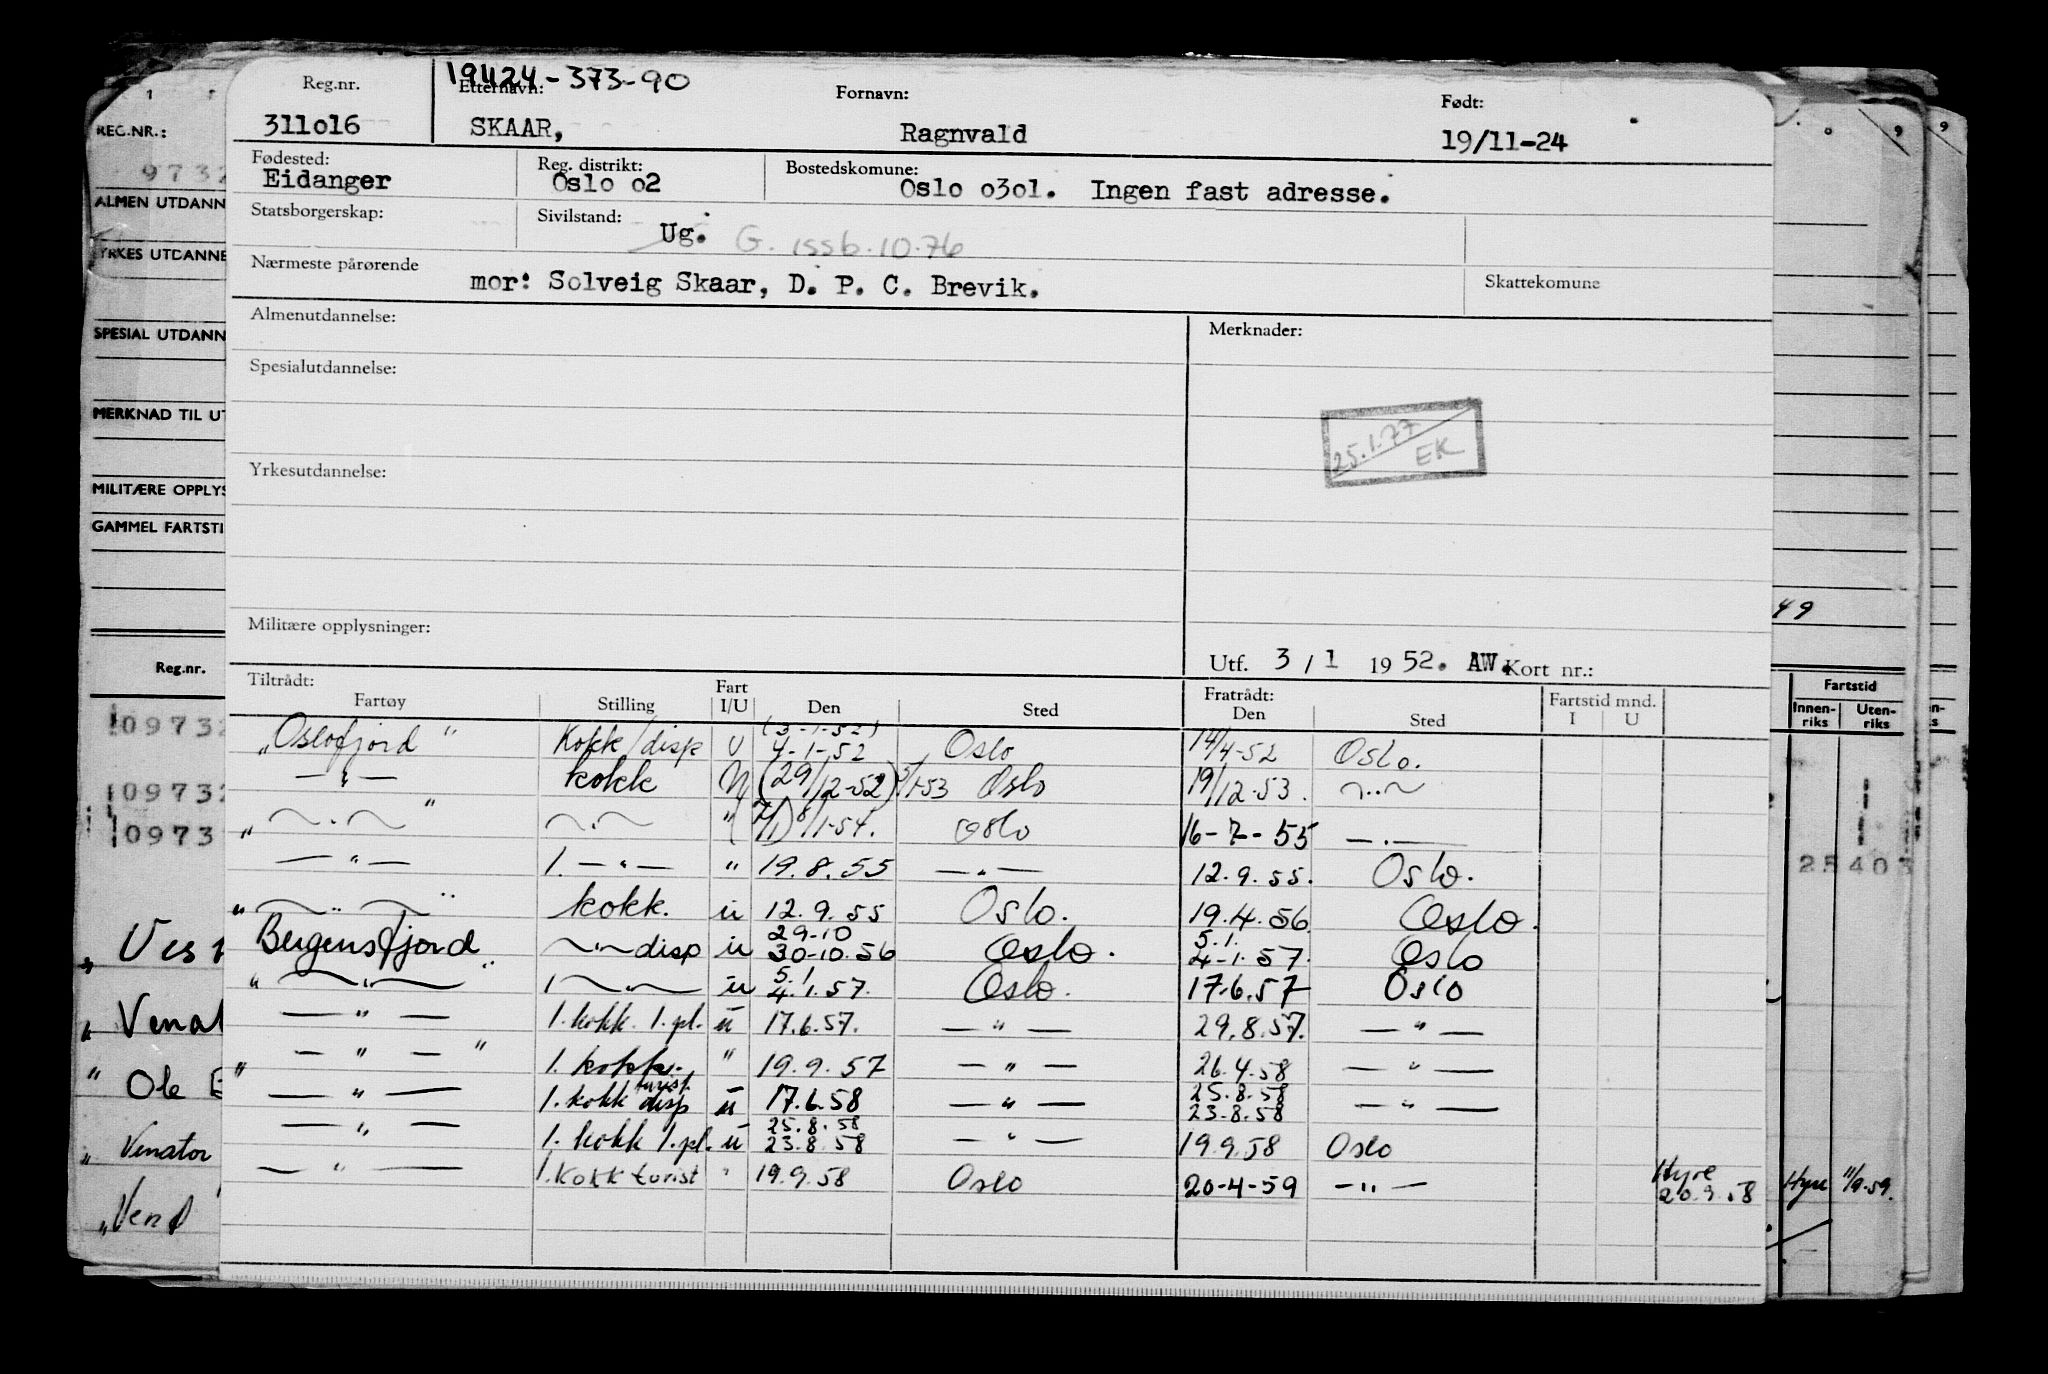 Reg.nr. 191124-373-90
Etternavn: Fornavn: Født:
311016 SKAAR, Ragnvald 19/11-24
Fødested: Reg. distrikt: Bostedskomune:
Eidanger Oslo o2 Oslo o3o1. Ingen fast adresse.
Statsborgerskap: Sivilstand: Ug. G. issb.10.76
Nærmeste pårørende Skattekomune
mor: Solveig Skaar, D. P. C. Brevik.
Almenutdannelse: Merknader:
Spesialutdannelse:
25.1.77
EK
Yrkesutdannelse:
Militære opplysninger:
Utf. 3 / 1 1952. AW. Kort nr.:
Tiltrådt: Fratrådt:
Fartøy Stilling Fart I/U Den Sted Den Sted Fartstid mnd. I U
(3-1-52)
"Oslofjord" Kokk/disp U 4-1-52 Oslo 14/4-52 Oslo.
— " — kokk U (29/12-52) 5/1-53 Oslo 19/12-53. — " —
" — " — " — " — " (7/1) 8/1-54. Oslo 16-7-55 — " —
— " — 1. — " — " 19.8.55 — " — 12.9.55. Oslo.
" — " — " kokk. u 12.9.55 Oslo. 19.4.56 Oslo.
29-10 5.1.
Bergensfjord — " — disp u 30-10.56 Oslo. 4-1.57. Oslo
5.1.
" — " — " 1 — " — u 4.1.57. Oslo. 17.6.57 Oslo
— " — 1. kokk 1. pl. u 17.6.57. — " — 29.8.57. — " —
" — " — " 1. kokk. " 19.9.57 — " — 26.4.58 — " —
turist 25.8.58
— " — 1. kokk disp u 17.6.58 — " — 23.8.58 — " —
25.8.58
— " — 1. kokk 1. pl. u 23.8.58 — " — 19.9.58 Oslo
— " — 1. Kokk turist " 19.9.58 Oslo 20-4-59 — " — Hyre 20.9.58
REG.NR.:
9732
ALMEN UTDANN
YRKES UTDANNE
SPESIAL UTDANN
MERKNAD TIL UT
MILITÆRE OPPLYS
GAMMEL FARTSTI
Reg.nr.
09732
09732
0973
" Venat
" Ole
" Venator
49
Fartstid
Innenriks Utenriks
25403
Hyre 11/9-59.